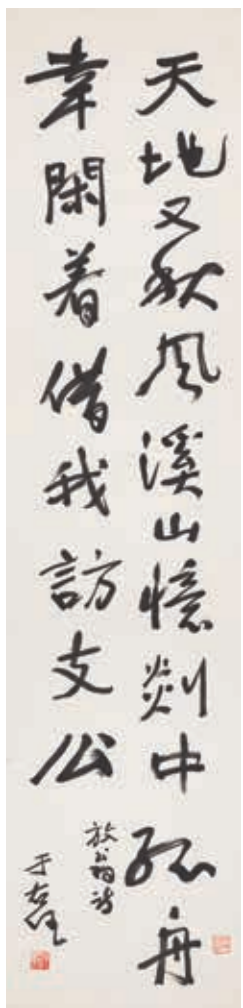 天地又秋风溪山憶剡中孤舟
幸閑着借我訪支公
放翁詩
于右任